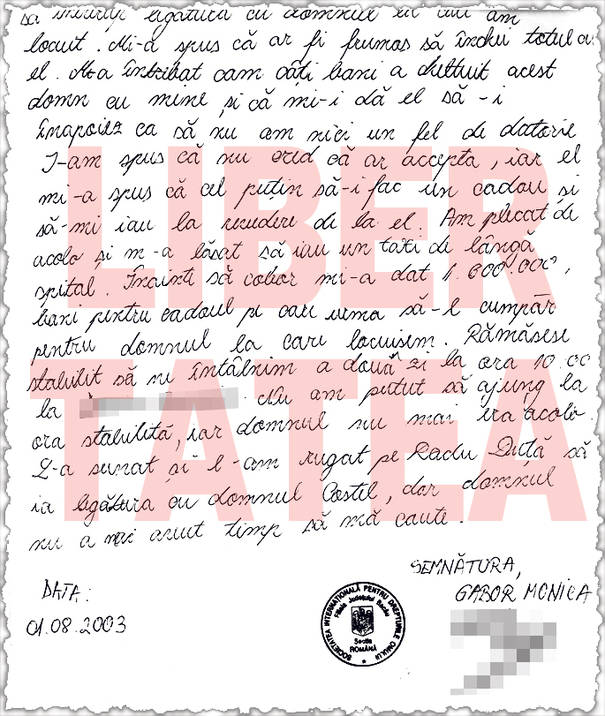 legătura cu domnul la care am
locuit. Mi-a spus că ar fi frumos să închei totul cu
el. M-a întrebat cam câți bani a cheltuit acest
domn cu mine și că mi-i dă el să-i
înapoiez ca să nu am nici un fel de datorie
I-am spus că nu cred că ar accepta, iar el
mi-a spus că cel puțin să-i fac un cadou și
să-mi iau la revedere de la el. Am plecat de
acolo și m-a lăsat să iau un taxi de lângă
spital. Înainte să cobor mi-a dat 1.000.000,
bani pentru cadoul pe care urma să-l cumpăr
pentru domnul la care locuisem. Rămăsese
stabilit să ne întâlnim a doua zi la ora 10.00
la . Nu am putut să ajung la
ora stabilită, iar domnul nu mai era acolo.
L-a sunat și l-am rugat pe Radu Duță să
ia legătura cu domnul Costel, dar domnul
nu a mai avut timp să mă caute.
SEMNĂTURA,
GABOR MONICA
DATA:
01.08.2003
SOCIETATEA INTERNAȚIONALĂ PENTRU DREPTURILE OMULUI
Filiala Județului Bacău
Secția
ROMÂNĂ
LIBER
TATEA